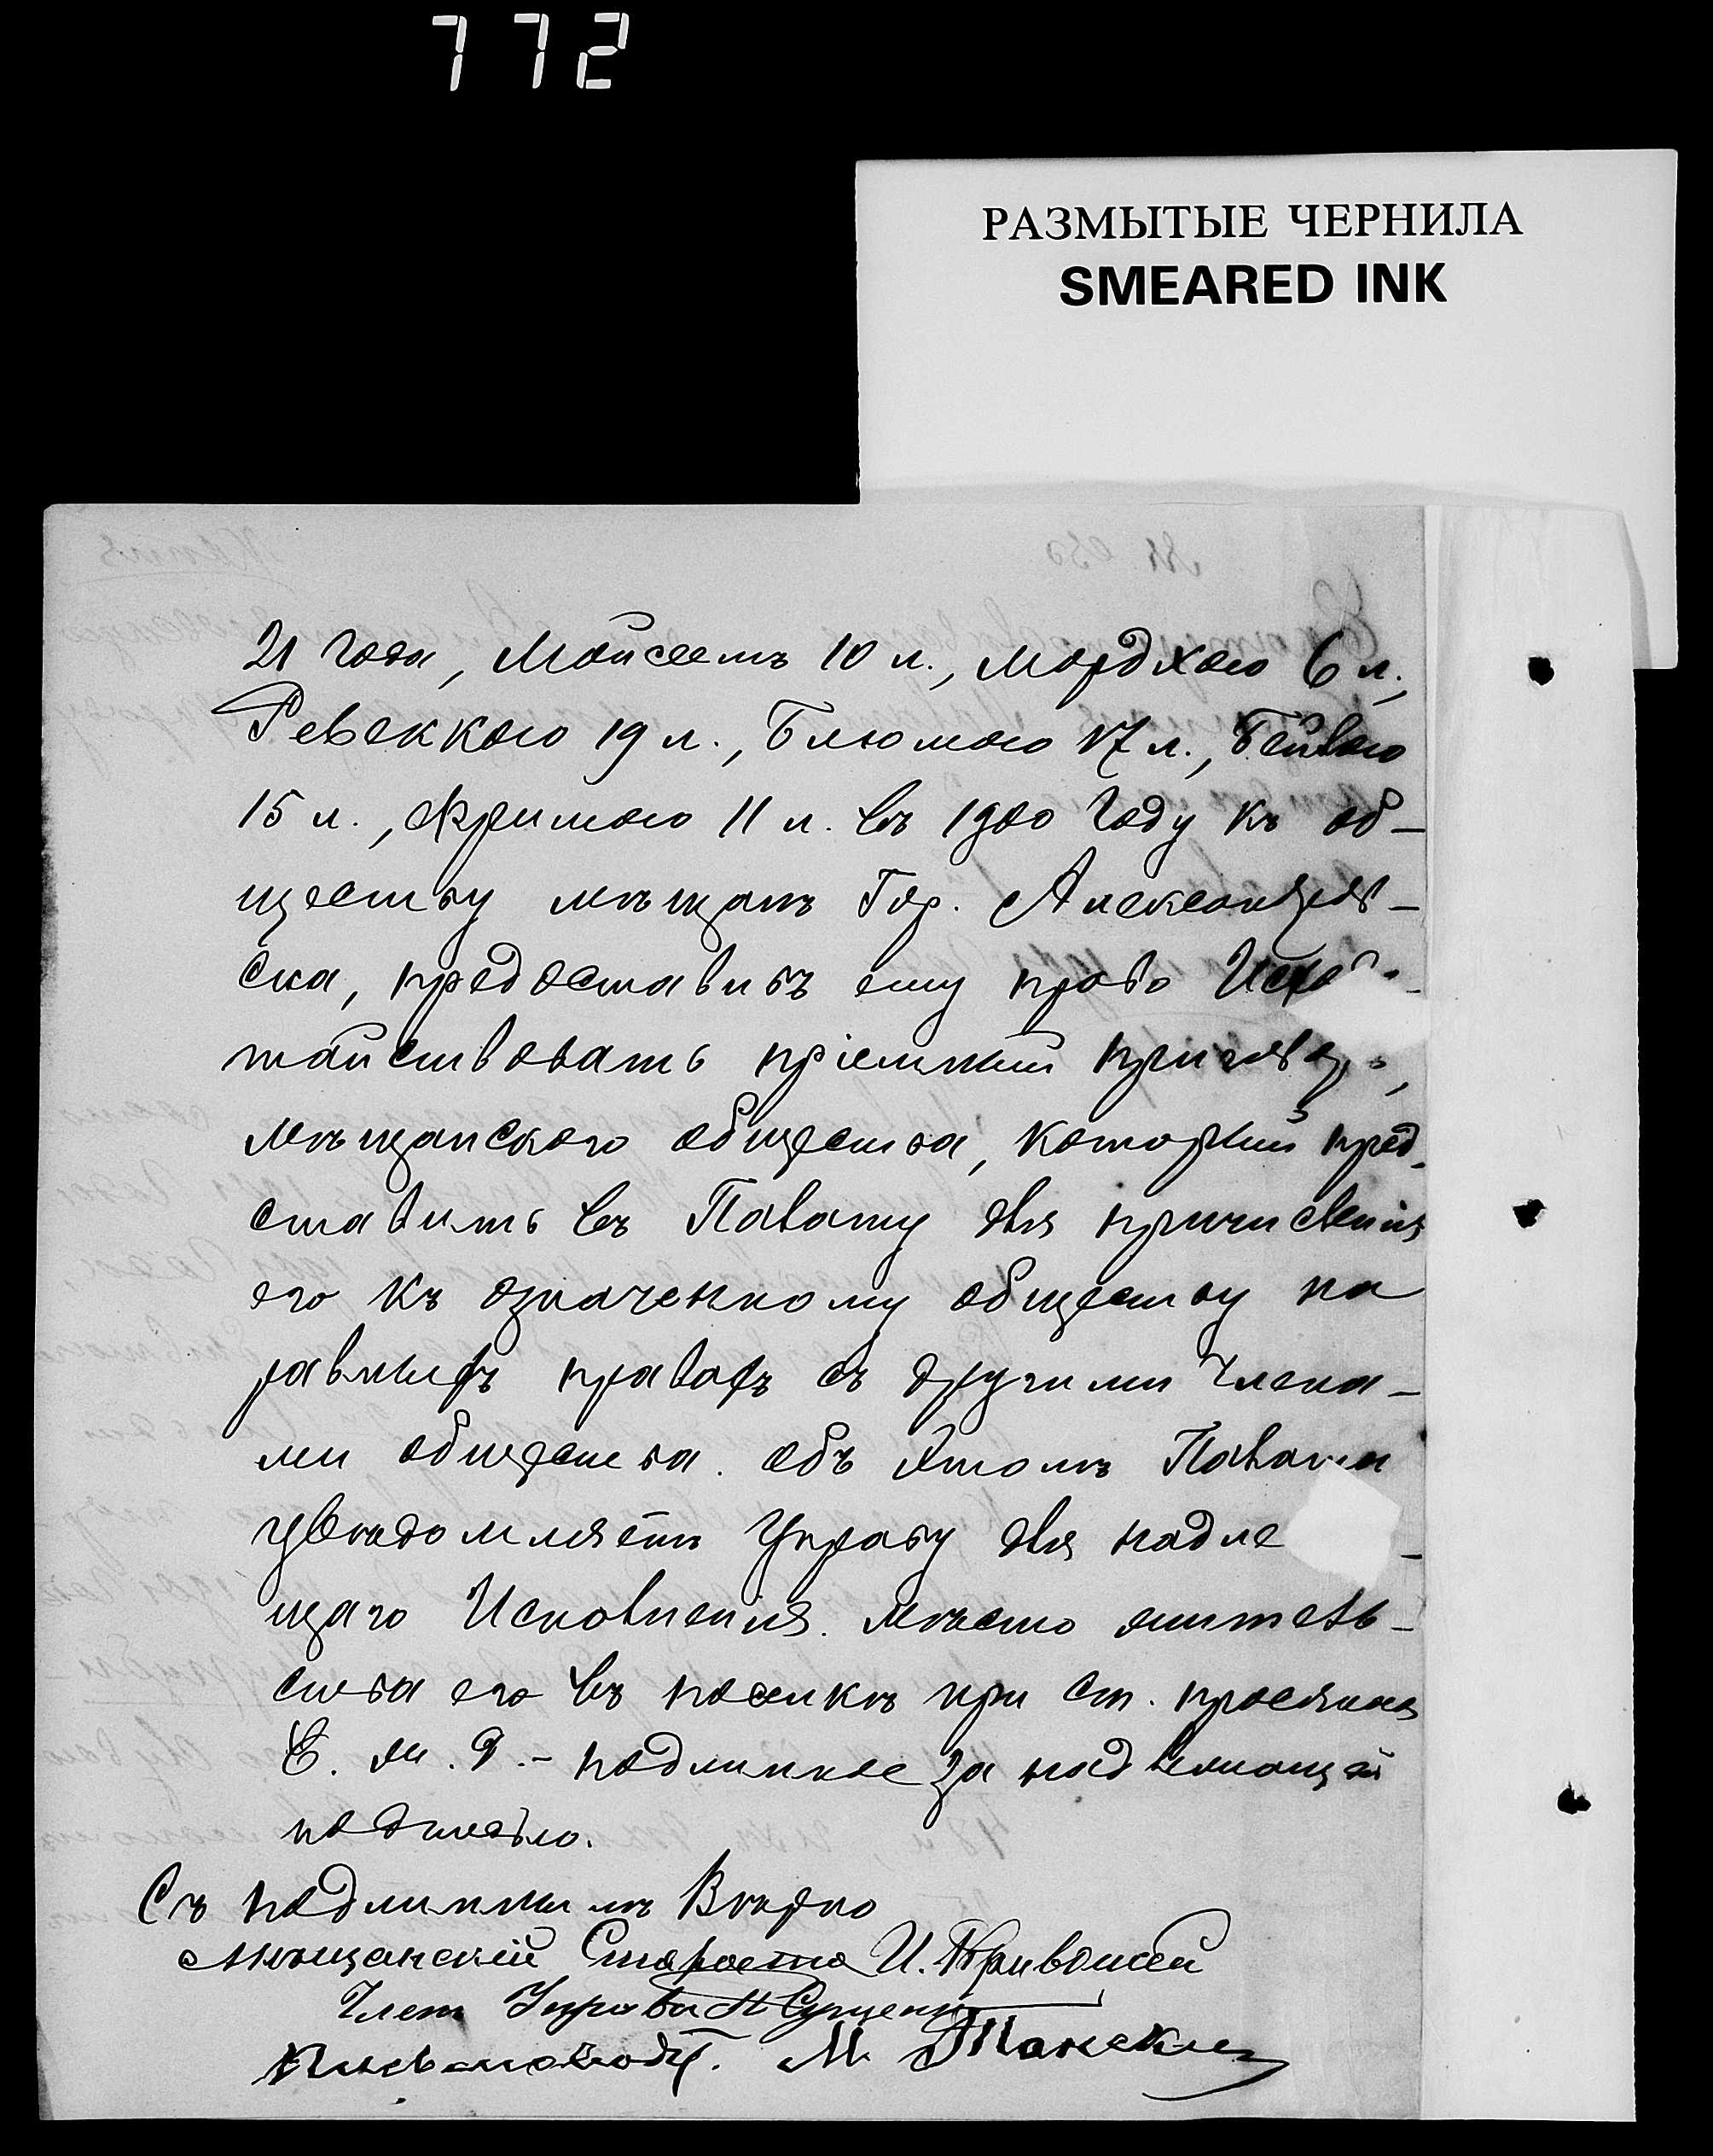 772
РАЗМЫТЫЕ ЧЕРНИЛА
SMEARED INK
21 года, Мойсеемъ 10 л., Мордхою 6 л.,
Ревеккою 19 л., Блюмою 17 л., Бейлою
15 л., Фримою 11 л. въ 1900 году къ об-
ществу мѣщанъ Гор. Александров-
ска, предоставивъ ему право Исхо-
тайствовать пріемный приговоръ,
мѣщанского общества, который пред-
ставить въ Палату для причисленія
его къ означенному обществу на
равныхъ правахъ съ другими члена-
ми общества. Объ этомъ Палата
увѣдомляетъ Управу для надле -
щаго Исполненія. Мѣсто житель-
ства его въ поселкѣ при ст. просяная
Е. ж. д. - подлинное за надлежащей
подписью.
Съ подлиннымъ Вѣрно
Мѣщанскій Староста И. Кривошей
Членъ Управы Н Сущенко
Письмоводт. М.